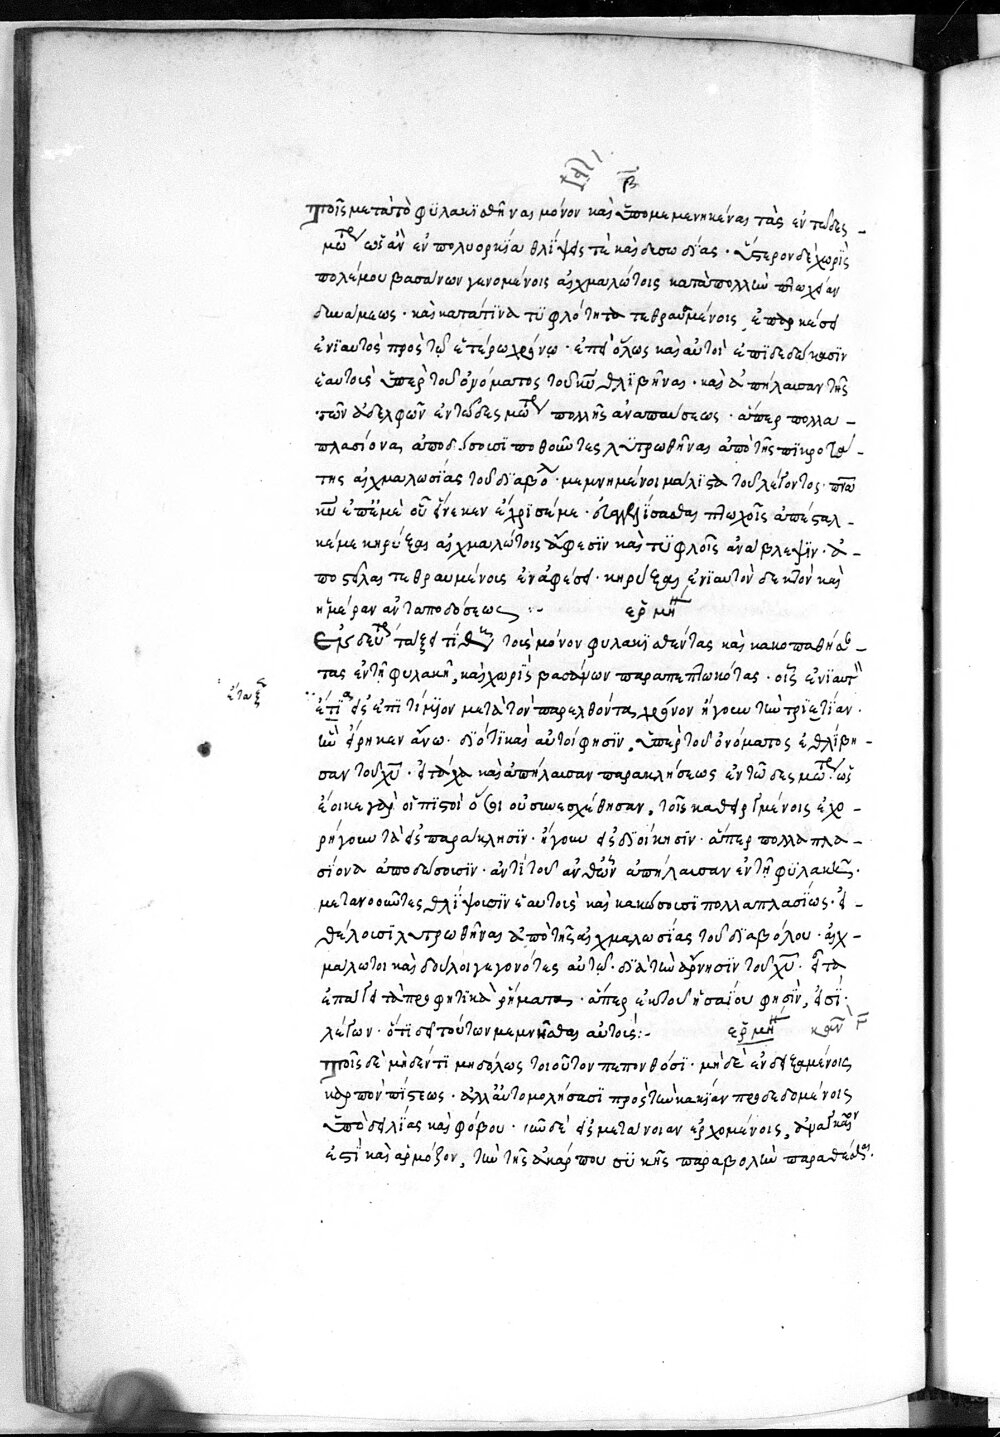 β
τοῖς μετὰ τὸ φυλακισθῆναι μόνον καὶ ὑπομεμενηκέναι τὰς ἐν τῷ δεσ-
μωτη ὡς ἂν ἐν πολυορκία θλίψεις τε καὶ δυσωδίας · ὕστερον δὲ χωρὶς
πολέμου βασάνων γενομένοις αἰχμαλώτοις κατὰ πολλὴν πτωχείαν
δυνάμεως · καὶ κατά τινα τυφλότητα τεθραυμένοις, ἐπαρκέσει
ἐνιαυτὸς πρὸς τῷ ἑτέρω χρόνω · ἐπεὶ ὅλως καὶ αὐτοὶ ἐπιδεδώκασιν
ἑαυτοὺς ὑπὲρ τοῦ ὀνόματος τοῦ χυ θλιβῆναι · καὶ ἀπήλαυσαν τῆς
τῶν ἀδελφῶν ἐν τῷ δεσμωτη πολλῆς ἀναπαύσεως · ἅπερ πολλα-
πλασίονα ἀποδώσουσι ποθοῦντες λυτρωθῆναι ἀπὸ τῆς πικροτά
της αἰχμαλωσίας τοῦ διαβόλ · μεμνημένοι μάλιστα τοῦ λέγοντος · πνα
κυ ἐπ' ἐμὲ οὗ εἵνεκεν ἔχρισέ με · εὐαγγελίσασθαι πτωχοῖς ἀπέσταλ-
κέ με κηρύξαι αἰχμαλώτοις ἄφεσιν καὶ τυφλοῖς ἀνάβλεψιν · ἀ-
ποστεῖλαι τεθραυμένοις ἐν ἀφέσει · κηρύξαι ἐνιαυτὸν δεκτὸν καὶ
ἡμέραν ἀνταποδόσεως ἑρμη
Εἰς δευτ τάξει τίθη τοὺς μόνον φυλακισθέντας καὶ κακοπαθήσα
τας ἐν τῆ φυλακῆ, καὶ χωρὶς βασάνων παραπεπτωκότας · οἷς ἐνιαυτ
ἔτι εἰς ἐπιτίμιον μετὰ τὸν παρελθόντα χρόνον ἤγουν τὴν τριετίαν ·
ἣν εἴρηκεν ἄνω · διότι καὶ αὐτοί φησιν, ὑπὲρ τοῦ ὀνόματος ἐθλίβη-
σαν τοῦ χυ · εἰ τάχα καὶ ἀπήλαυσαν παρακλήσεως ἐν τῷ δεσμωτη · ὡς
ἔοικε γὰρ οἱ πιστοὶ ὅσοι οὐ συνεσχέθησαν, τοῖς καθειργμένοις ἐχο-
ρήγουν τὰ εἰς παράκλησιν · ἤγουν εἰς διοίκησιν · ἅπερ πολλαπλα-
σίονα ἀποδώσουσιν · ἀντὶ τοῦ ἀνθ' ὧν ἀπήλαυσαν ἐν τῆ φυλακῆ ·
μετανοοῦντες θλίψουσιν ἑαυτοὺς καὶ κακώσουσι πολλαπλασίως · εἰ-
θέλουσι λυτρωθῆναι ἀπὸ τῆς αἰχμαλωσίας τοῦ διαβόλου · αἰχ-
μάλωτοι καὶ δοῦλοι γεγονότες αὐτῷ · διὰ τὴν ἄρνησιν τοῦ χυ · εἶτα
ἐπάγει τὰ προφητικὰ ῥήματα · ἅπερ ἐκ τοῦ ἡσαίου φησὶν, εἰσὶ ·
λέγων · ὅτι δεῖ τούτων μεμνῆσθαι αὐτούς :- ἑρμη καν γ
τοῖς δὲ μηδέν τι μηδόλως τοιοῦτον πεπονθόσι · μηδὲ ἐνδειξαμένοις
καρπὸν πίστεως · ἀλλ' αὐτομολήσασι πρὸς τὴν κακίαν προδεδομένοις
ὑπὸ δειλίας καὶ φόβου · νῦν δὲ εἰς μετάνοιαν ἐρχομένοις, ἀναγκαῖον
ἐστὶ καὶ ἁρμόζον, τὴν τῆς ἀκάρπου συκῆς παραβολὴν παραθέσθαι ·